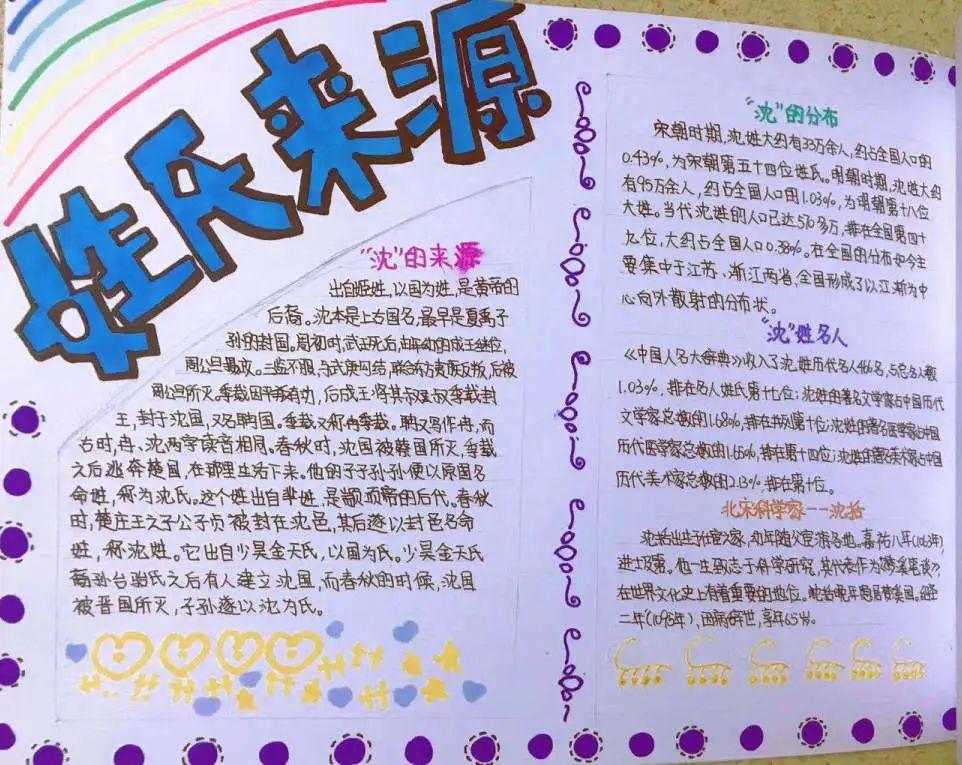 姓氏来源
"沈"的来源
出自姬姓，以国为姓，是黄帝的
后裔。沈本是上古国名，最早是夏禹子
孙的封国。周初时，武王死后由年幼的成王继位，
周公旦摄政。三监不服，与武庚勾结，联合东方夷族反叛，后被
周公旦所灭。季载因平叛有功，后成王将其叔叔季载封
王，封于沈国，又名聃国。季载又称冉季载。聃又写作冉，而
古时，冉、沈两字读音相同。春秋时，沈国被蔡国所灭，季载
之后逃奔楚国，在那里生活下来。他的子子孙孙便以原国名
命姓，称为沈氏。这个姓出自芈姓，是颛顼帝的后代。春秋
时，楚庄王之子公子贞被封在沈邑，其后遂以封邑名命
姓，称沈姓。它出自少昊金天氏，以国为氏。少昊金天氏
裔孙台骀氏之后有人建立沈国，而春秋的时候，沈国
被晋国所灭，子孙遂以沈为氏。
"沈"的分布
宋朝时期，沈姓大约有33万余人，约占全国人口的
0.43%，为宋朝第五十四位姓氏。明朝时期，沈姓大约
有95万余人，约占全国人口的1.03%，为明朝第十八位
大姓。当代沈姓的人口已达570多万，排在全国第四十
九位，大约占全国人口0.38%。在全国的分布如今主
要集中于江苏、浙江两省，全国形成了以江浙为中
心向外散射的分布状。
"沈"姓名人
《中国人名大辞典》收入了沈姓历代名人466名，占总名人数
1.03%，排在名人姓氏第十七位；沈姓的著名文学家占中国历代
文学家总数的1.68%，排在并列第十位；沈姓的著名医学家占中国
历代医学家总数的1.65%，排在第十四位；沈姓的著名美术家占中国
历代美术家总数的2.13%，排在第十位。
北宋科学家---沈括
沈括出生于仕宦之家，幼年随父宦游各地。嘉祐八年(1063年)，
进士及第。他一生致志于科学研究，其代表作为《梦溪笔谈》，
在世界文化史上有着重要的地位。沈括晚年隐居梦溪园。绍圣
二年(1095年)，因病辞世，享年65岁。